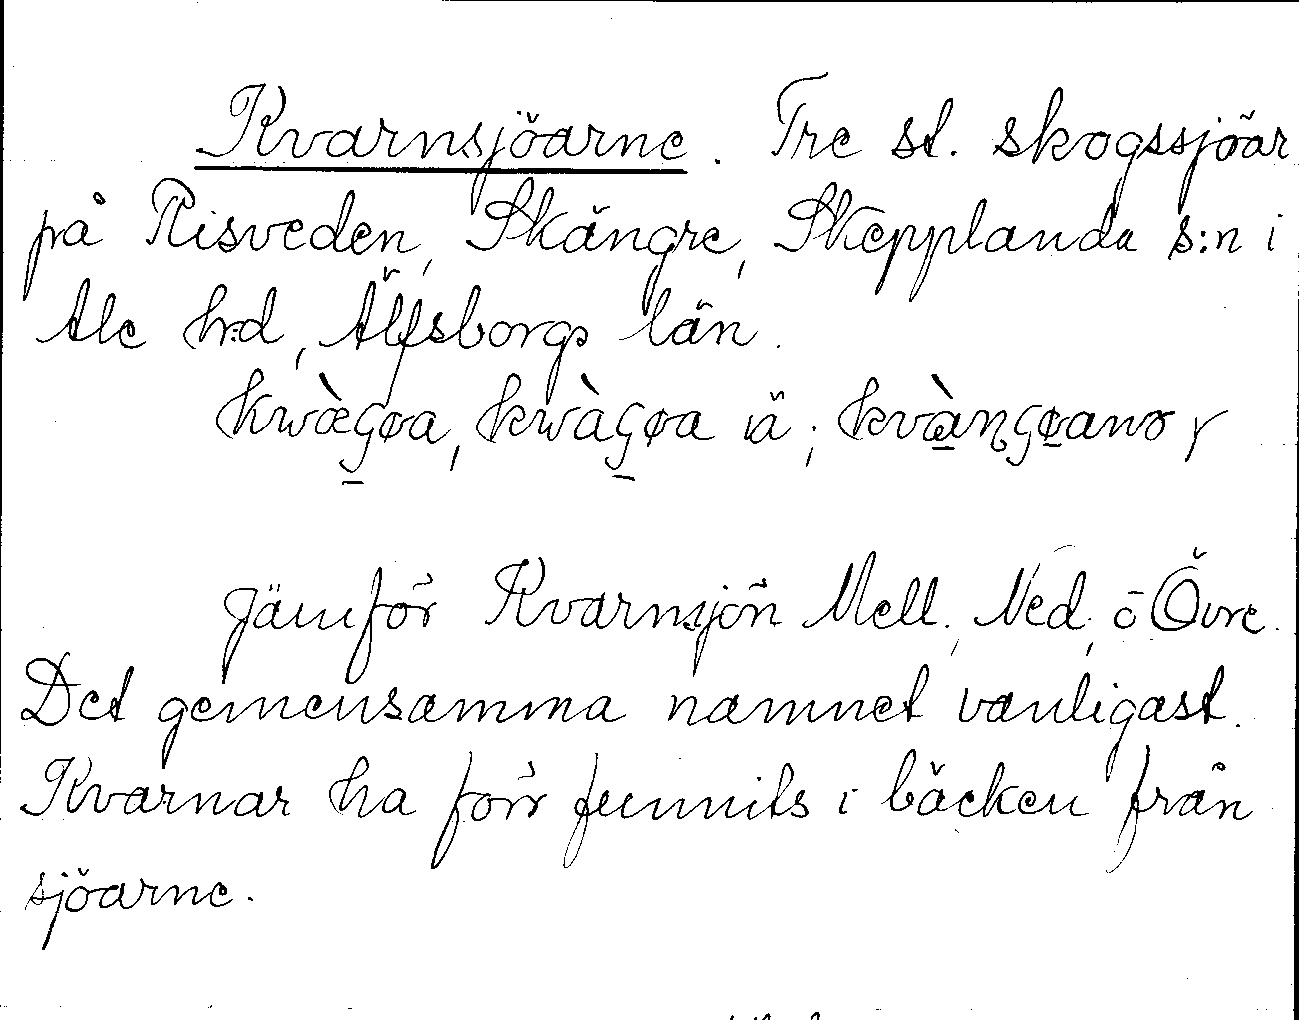 Kvarnsjöarne. Tre st. skogssjöar
på Risveden, Skängre, Skepplanda s:n i
Ale h:d, Älfsborgs län.
kwæ̀ɕøa, kwàɕøa ä;
Jämför Kvarnsjön Mell., Ned. o Övre.
Det gemensamma namnet vanligast.
Kvarnar ha förr funnits i bäcken från
sjöarne.